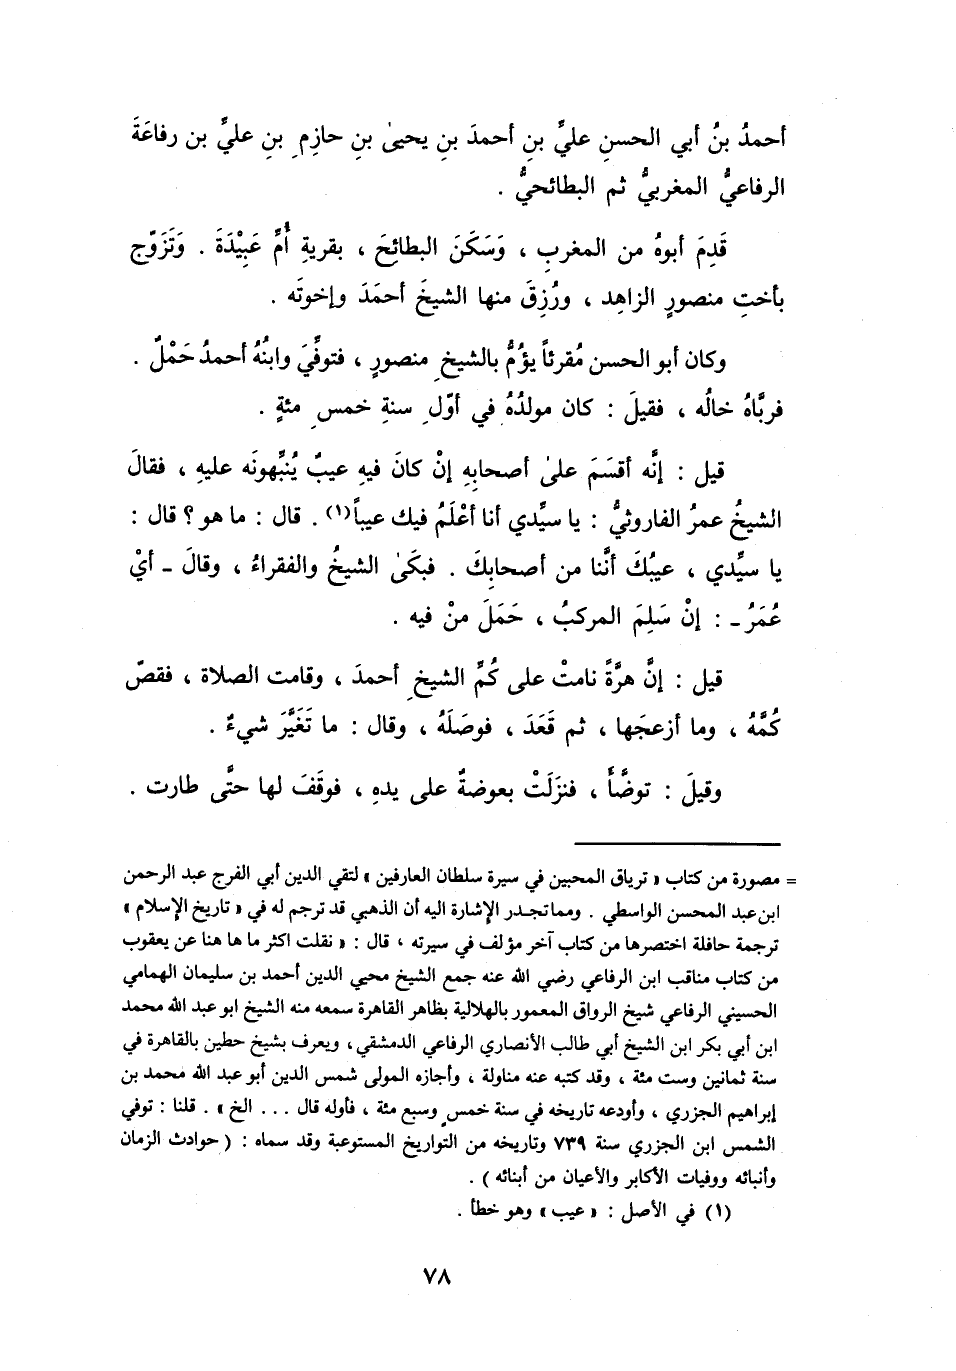 أحمدُ بنُ أبي الحسنِ عليِّ بنِ أحمدَ بنِ يحيىٰ بنِ حازِمِ بنِ عليِّ بن رفاعَةَ
الرفاعيُّ المغربيُّ ثم البطائحيُّ .
قَدِمَ أبوهُ من المغربِ ، وَسَكَنَ البطائِحَ ، بقريةِ أُمِّ عَبِيْدَةَ . وَتَزَوّج
بأختِ منصورٍ الزاهِد ، ورُزِقَ منها الشيخَ أحمَدَ وإخوتَه .
وكان أبو الحسن مُقرئاً يؤُمُّ بالشيخِ منصورٍ ، فتوفِّيَ وابنُهُ أحمدُ حَمْلٌ .
فربَّاهُ خالُه ، فقيلَ : كان مولدُهُ في أوّلِ سنةِ خمسِ مئةٍ .
قيل : إنَّه أقسَمَ علىٰ أصحابِهِ إنْ كانَ فيهِ عيبٌ يُنبِّهونَه عليهِ ، فقالَ
الشيخُ عمرُ الفاروثيُّ : يا سيِّدي أنا أعْلَمُ فيك عيباً(١) . قال : ما هو ؟ قال :
يا سيِّدي ، عيبُكَ أنَّنا من أصحابِكَ . فبكَىٰ الشيخُ والفقراءُ ، وقالَ ـ أيْ
عُمَرُ ـ : إنْ سَلِمَ المركبُ ، حَمَلَ منْ فيه .
قيل : إنَّ هرَّةً نامتْ على كُمِّ الشيخِ أحمدَ ، وقامت الصلاة ، فقصّ
كُمَّهُ ، وما أزعجَها ، ثم قَعَدَ ، فوصَلَهُ ، وقال : ما تَغَيَّرَ شيءٌ .
وقيلَ : توضَّأَ ، فنزَلَتْ بعوضةٌ على يدهِ ، فوقَفَ لها حتَّى طارت .
= مصورة من كتاب « ترياق المحبين في سيرة سلطان العارفين » لتقي الدين أبي الفرج عبد الرحمن
ابن عبد المحسن الواسطي . ومما تجدر الإشارة اليه أن الذهبي قد ترجم له في « تاريخ الإسلام »
ترجمة حافلة اختصرها من كتاب آخر مؤلف في سيرته ، قال : « نقلت اكثر ما ها هنا عن يعقوب
من كتاب مناقب ابن الرفاعي رضي الله عنه جمع الشيخ محيي الدين أحمد بن سليمان الهمامي
الحسيني الرفاعي شيخ الرواق المعمور بالهلالية بظاهر القاهرة سمعه منه الشيخ ابو عبد الله محمد
ابن أبي بكر ابن الشيخ أبي طالب الأنصاري الرفاعي الدمشقي ، ويعرف بشيخ حطين بالقاهرة في
سنة ثمانين وست مئة ، وقد كتبه عنه مناولة ، وأجازه المولى شمس الدين أبو عبد الله محمد بن
إبراهيم الجزري ، وأودعه تاريخه في سنة خمس وسبع مئة ، فأوله قال . . . الخ » . قلنا : توفي
الشمس ابن الجزري سنة ٧٣٩ وتاريخه من التواريخ المستوعبة وقد سماه : ( حوادث الزمان
وأنبائه ووفيات الأكابر والأعيان من أبنائه ) .
(١) في الأصل : « عيب » وهو خطأ .
٧٨